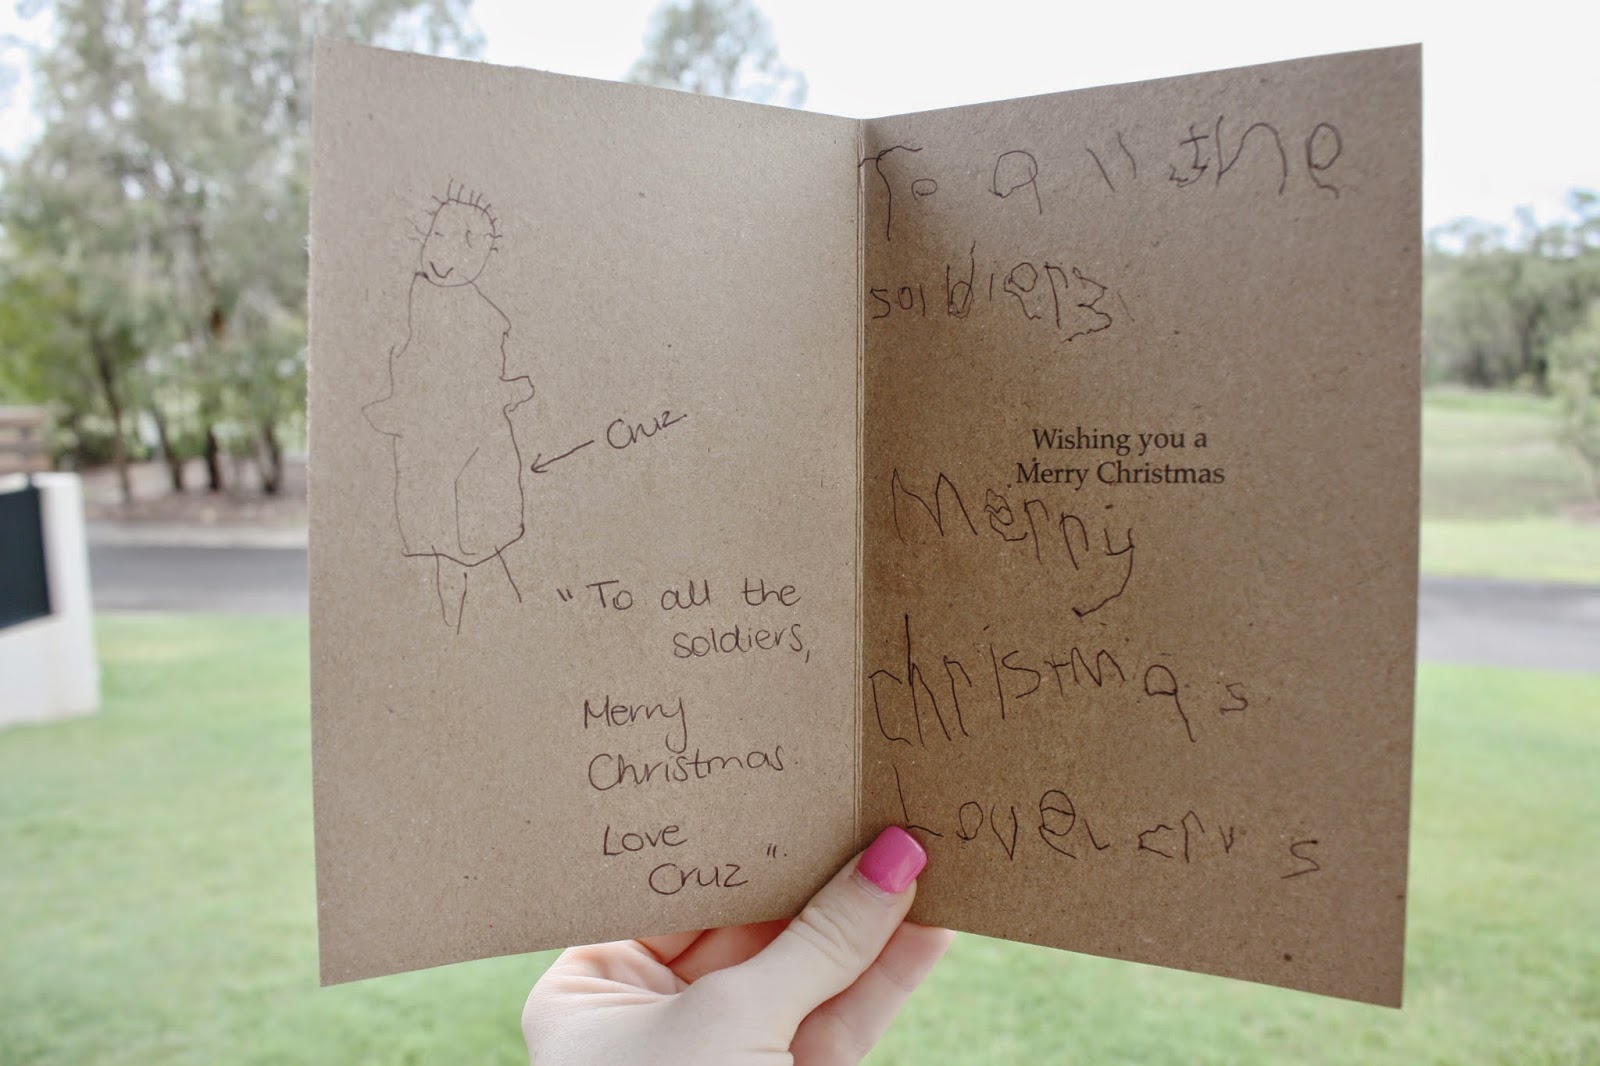 Cruz
"To all the
soldiers,
Merry
Christmas.
Love
Cruz".
To all the
soldiers
Wishing you a
Merry Christmas
Merry
christmas
Love crus